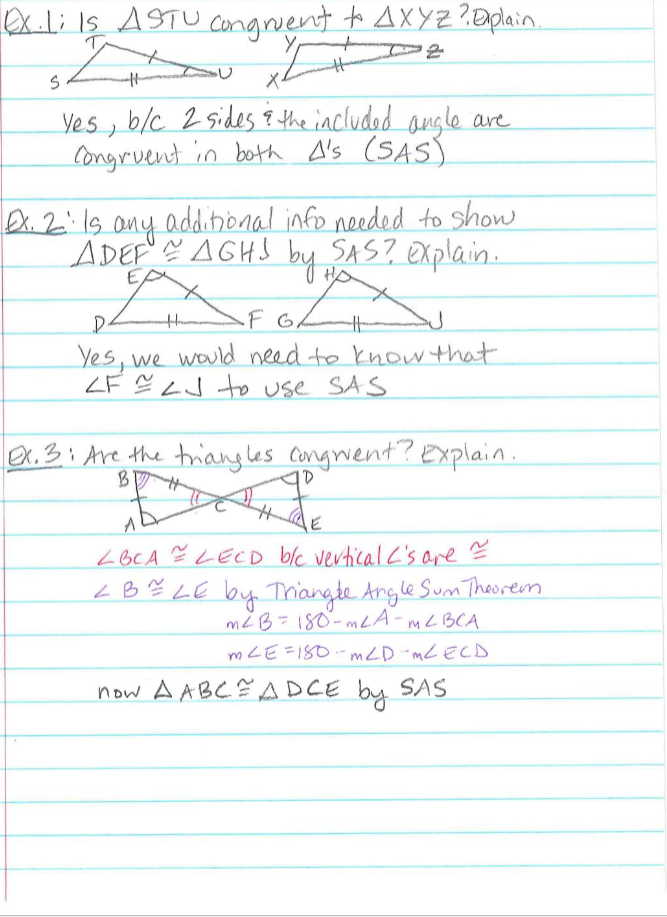 Ex. 1: Is △STU congruent to △XYZ? Explain.
T
Y
Z
S
U
X
Yes, b/c 2 sides & the included angle are
congruent in both △'s (SAS)
Ex. 2: Is any additional info needed to show
△DEF ≅ △GHJ by SAS? Explain.
E
H
D
F
G
J
Yes, we would need to know that
∠F ≅ ∠J to use SAS
Ex. 3: Are the triangles congruent? Explain.
B
D
C
A
E
∠BCA ≅ ∠ECD b/c vertical ∠'s are ≅
∠B ≅ ∠E by Triangle Angle Sum Theorem
m∠B = 180 - m∠A - m∠BCA
m∠E = 180 - m∠D - m∠ECD
now △ABC ≅ △DCE by SAS